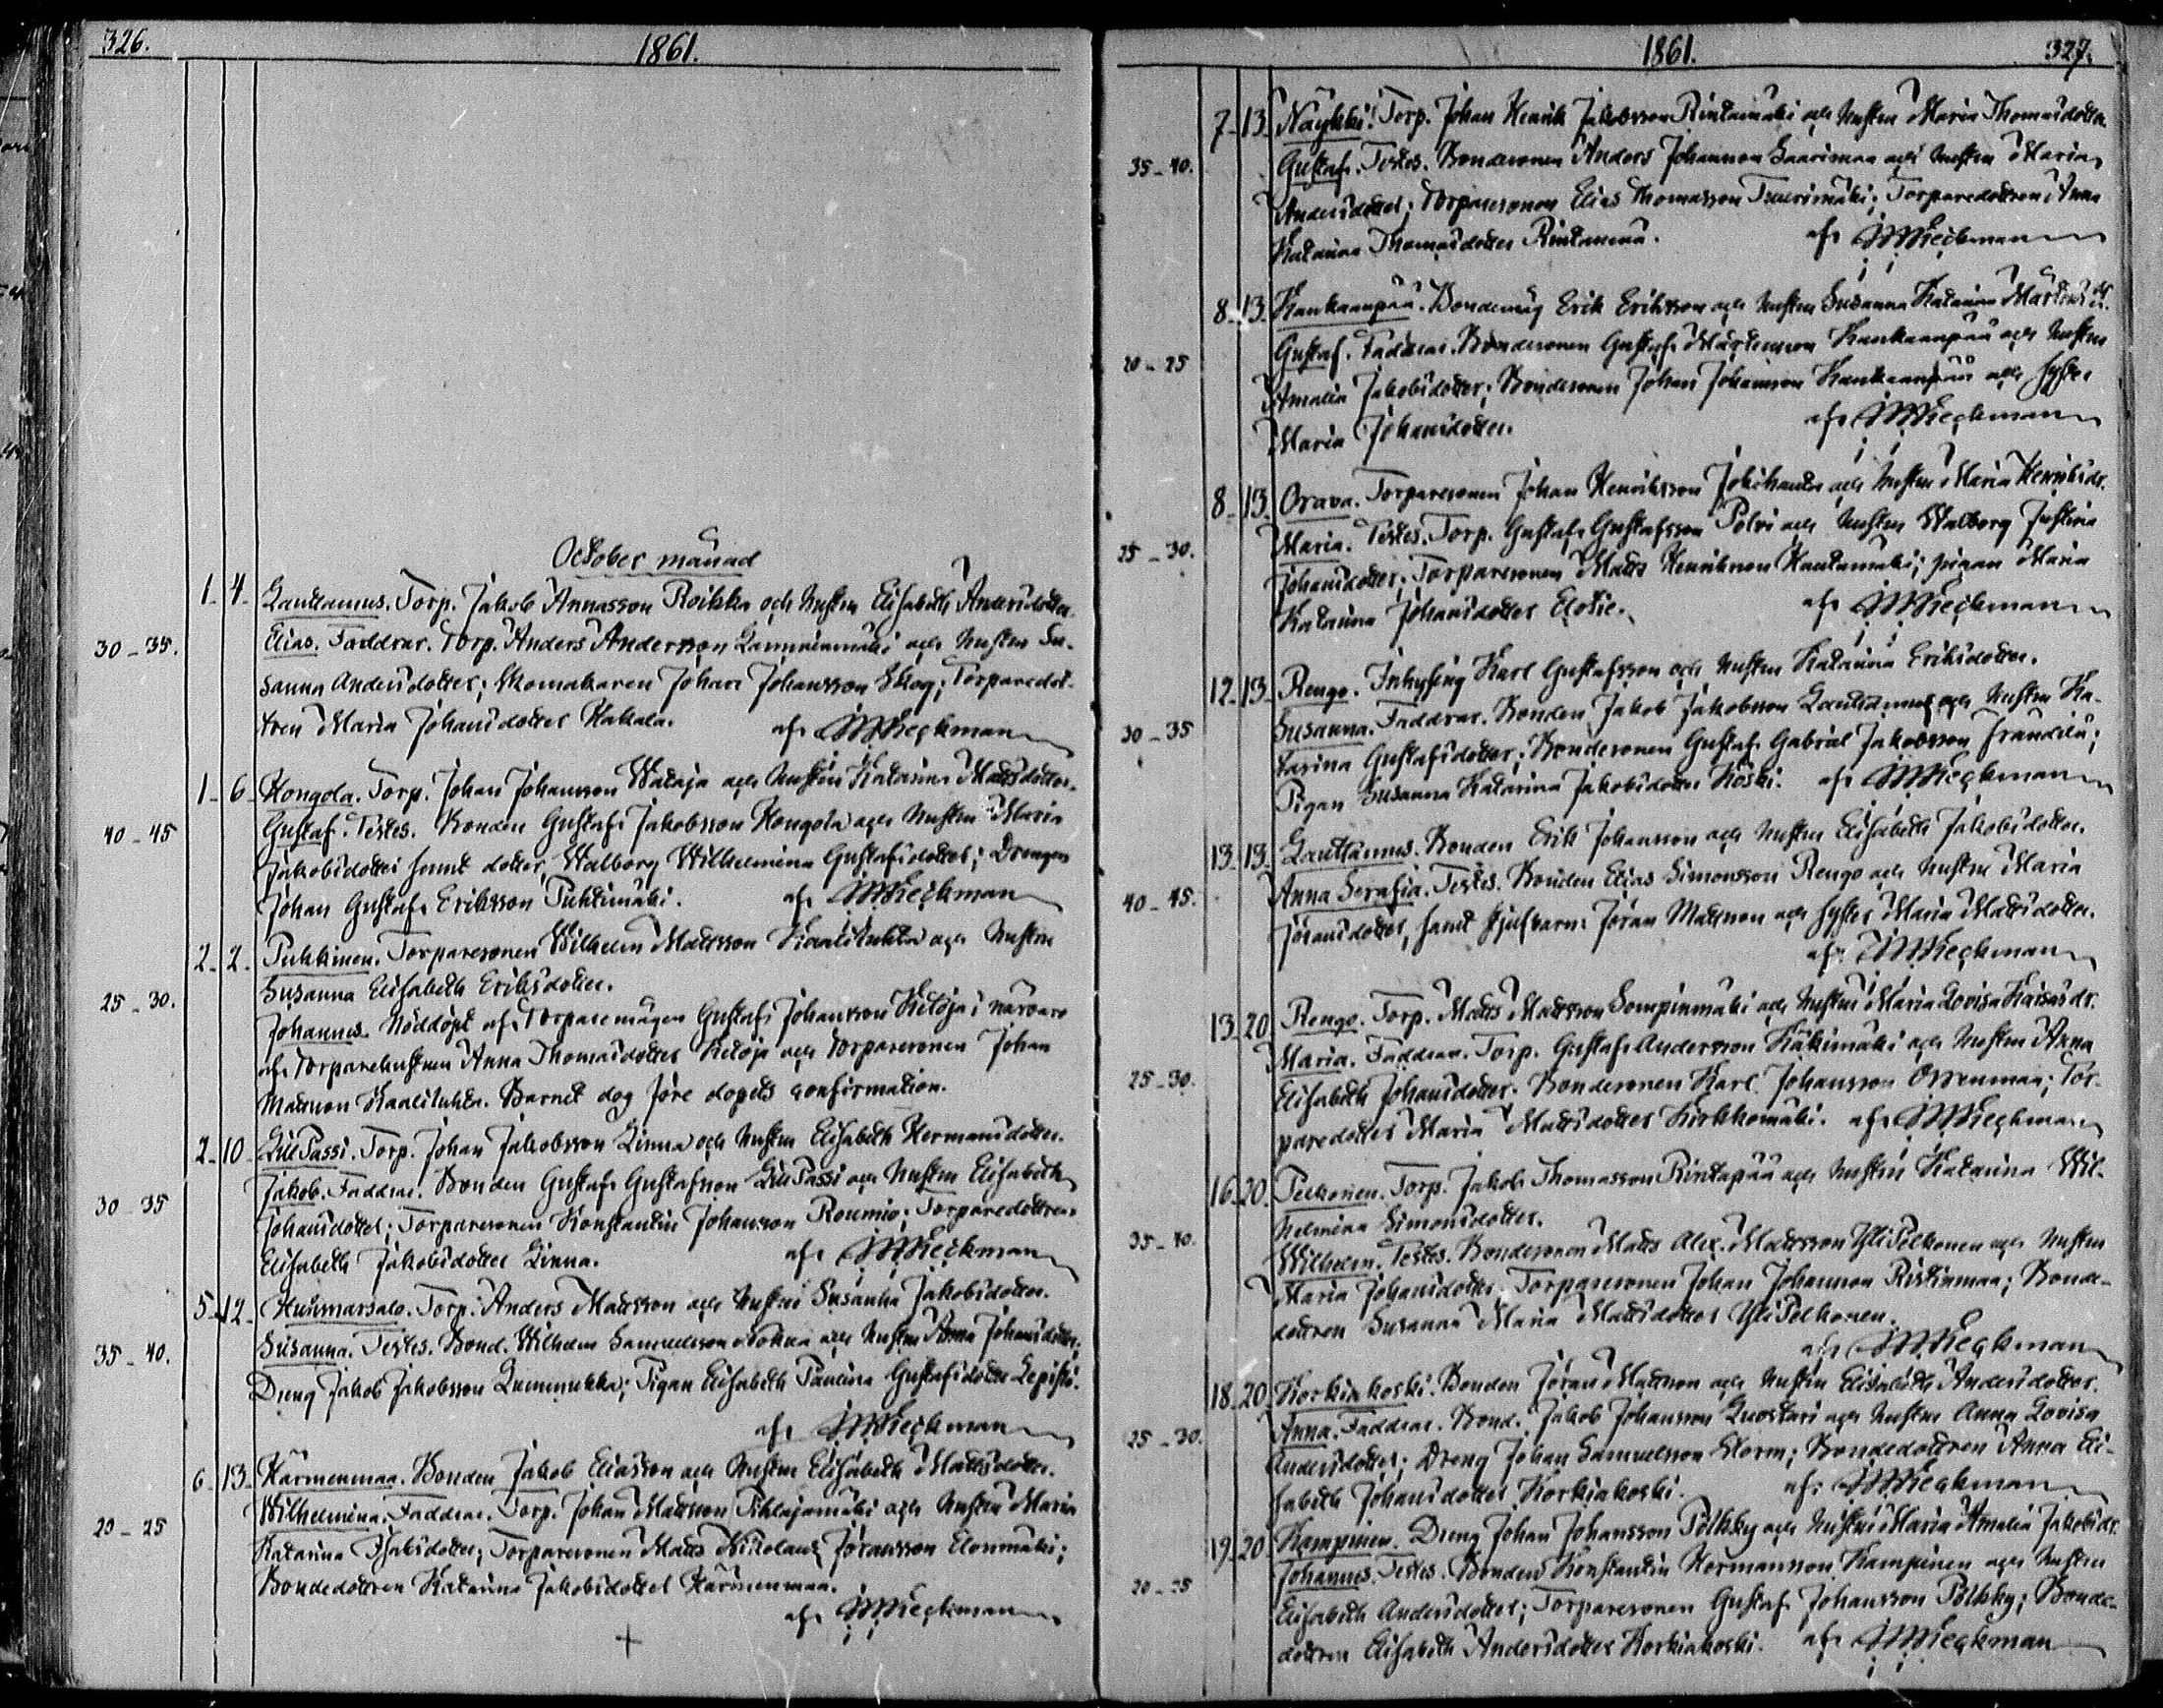 326.
1861.
October månad
1. 4. Lauttamus. Torp. Jakob Annasson Roikka och hustru Elisabeth Andersdotter.
30-35. Elias. Faddrar. Torp. Anders Andersson och hustru Su-
sanna Andersdotter; Skomakaren Johan Johansson Skog; Torparedot-
tren Maria Johansdotter Kakala. af
1. 6. Kongola. Torp. Johan Johansson Wataja och hustru Katarina Mattsdotter.
40-45 Gustaf. Testes. Bonden Gustaf Jakobsson Kongola och hustru Maria
Jakobsdotter samt dotter Walborg Wilhelmina Gustafsdotter; Drengen
Johan Gustaf Eriksson Puhtimäki. af
2. 2. Puhkinen. Torparesonen Wilhelm Mattsson och hustru
25-30. Susanna Elisabeth Eriksdotter.
Johannes. Nöddöpt af Torparemågen Gustaf Johansson Ketoja i närvaro
af Torparehustrun Anna Thomasdotter Ketoja och Torparesonen Johan
Mattsson. Barnet dog före dopets confirmation.
2. 10. LillPassi. Torp. Johan Jakobsson Linna och hustru Elisabeth Hermansdotter.
30-35 Jakob. Faddrar. Bonden Gustaf Gustafsson LillPassi och hustru Elisabeth
Johansdotter; Torparesonen Konstantin Johansson Roumio; Torparedottren
Elisabeth Jakobsdotter Linna. af
5. 12. Huumarsalo. Torp. Anders Mattsson och hustru Susanna Jakobsdotter.
35-40. Susanna. Testes. Bond. Wilhelm Samuelsson och hustru Anna Johansdotter;
Dreng Jakob Jakobsson Lummukka; Pigan Elisabeth Paulina Gustafsdotter Lepistö.
af
6. 13. Härmenmaa. Bonden Jakob Eliasson och hustru Elisabeth Mattsdotter.
20-25 Wilhelmina. Faddrar. Torp. Johan Mattsson Pihlajamäki och hustru Maria
Katarina Isaksdotter; Torparesonen Matts Nikolaus Göransson Elonmäki;
Bondedottren Katarina Jakobsdotter Härmenmaa.
af
1861.
327.
7. 13. Näykki. Torp. Johan Henrik Jakobsson Rintamäki och hustru Maria Thomasdotter.
35-40. Gustaf. Testes. Bondesonen Anders Johansson Saarimaa och hustru Maria
Andersdotter; Torparesonen Elias Thomasson; Torparedottren Anna
Katarina Thomasdotter. af
8. 13. Kankaanpää. Bondemåg Erik Eriksson och hustru Susanna Katarina Mårtensdr.
20-25 Gustaf. Faddrar. Bondesonen Gustaf Mårtensson Kankaanpää och hustru
Amalia Jakobsdotter; Bondesonen Johan Johansson Kankaanpää och syster
Maria Johansdotter. af
8. 13. Orava. Torparesonen Johan Henriksson och hustru Maria Henriksdr.
25-30. Maria. Testes. Torp. Gustaf Gustafsson Polvi och hustru Walborg Justina
Johansdotter; Torparesonen Matts Henriksson Hautamäki; pigan Maria
Katarina Johansdotter. af
12. 13. Rengo. Inhysing Karl Gustafsson och hustru Katarina Eriksdotter.
30-35 Susanna. Faddrar. Bonden Jakob Jakobsson Lauttamus och hustru Ka-
tarina Gustafsdotter; Bondesonen Gustaf Gabriel Jakobsson Frändilä;
Pigan Susanna Katarina Jakobsdotter Koski. af
13. 13. Lauttamus. Bonden Erik Johansson och hustru Elisabeth Jakobsdotter.
40-45. Anna Serafia. Testes. Bonden Elias Simonsson Rengo och hustru Maria
Göransdotter, samt Göran Mattsson och syster Maria Mattsdotter.
af
13. 20. Rengo. Torp. Matts Mattsson Sompinmäki och hustru Maria Lovisa Kaisasdr.
25-30. Maria. Faddrar. Torp. Gustaf Andersson Käkimäki och hustru Anna
Elisabeth Johansdotter. Bondesonen Karl Johansson; Tor-
paredotter Maria Mattsdotter Kirkkomäki. af
16. 20. Pelkonen. Torp. Jakob Thomasson Rintapää och hustru Katarina Wil-
helmina Simonsdotter.
35-40. Wilhelm. Testes. Bondesonen Matts Alex. Mattsson YliPelkonen och hustru
Maria Johansdotter. Torparesonen Johan Johansson Ristinmaa; Bonde-
dottren Susanna Maria Mattsdotter YliPelkonen.
af
18. 20. Korkiakoski. Bonden Göran Mattsson och hustru Elisabeth Andersdotter.
25-30. Anna. Faddrar. Bond. Jakob Johansson Luostari och hustru Anna Lovisa
Andersdotter; Dreng Johan Samuelsson Storm; Bondedottren Anna Eli-
sabeth Johansdotter Korkiakoski. af
19. 20 Kampinen. Dreng Johan Johansson Pölkky och hustru Maria Amalia Jakobsdr.
20-25 Johannes. Testes. Bonden Konstantin Hermansson Kampinen och hustru
Elisabeth Andersdotter; Torparesonen Gustaf Johansson Pölkky; Bonde-
dottren Elisabeth Andersdotter Korkiakoski. af